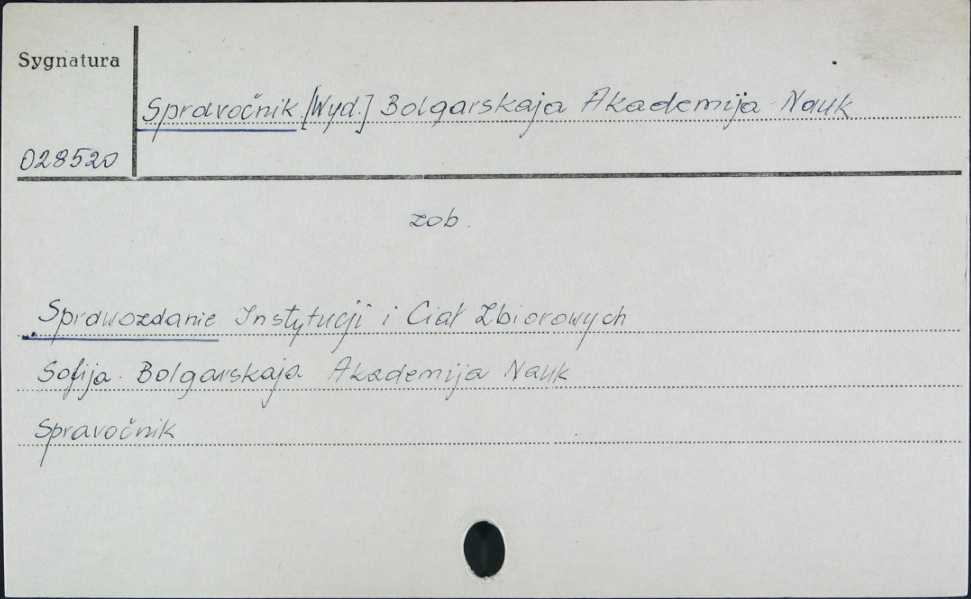 Sygnatura
Spravočnik [Wyd.] Bolgarskaja Akademija Nauk
028520
zob.
Sprawozdanie Instytucji i Ciał Zbiorowych
Sofija. Bolgarskaja Akademija Nauk
Spravočnik